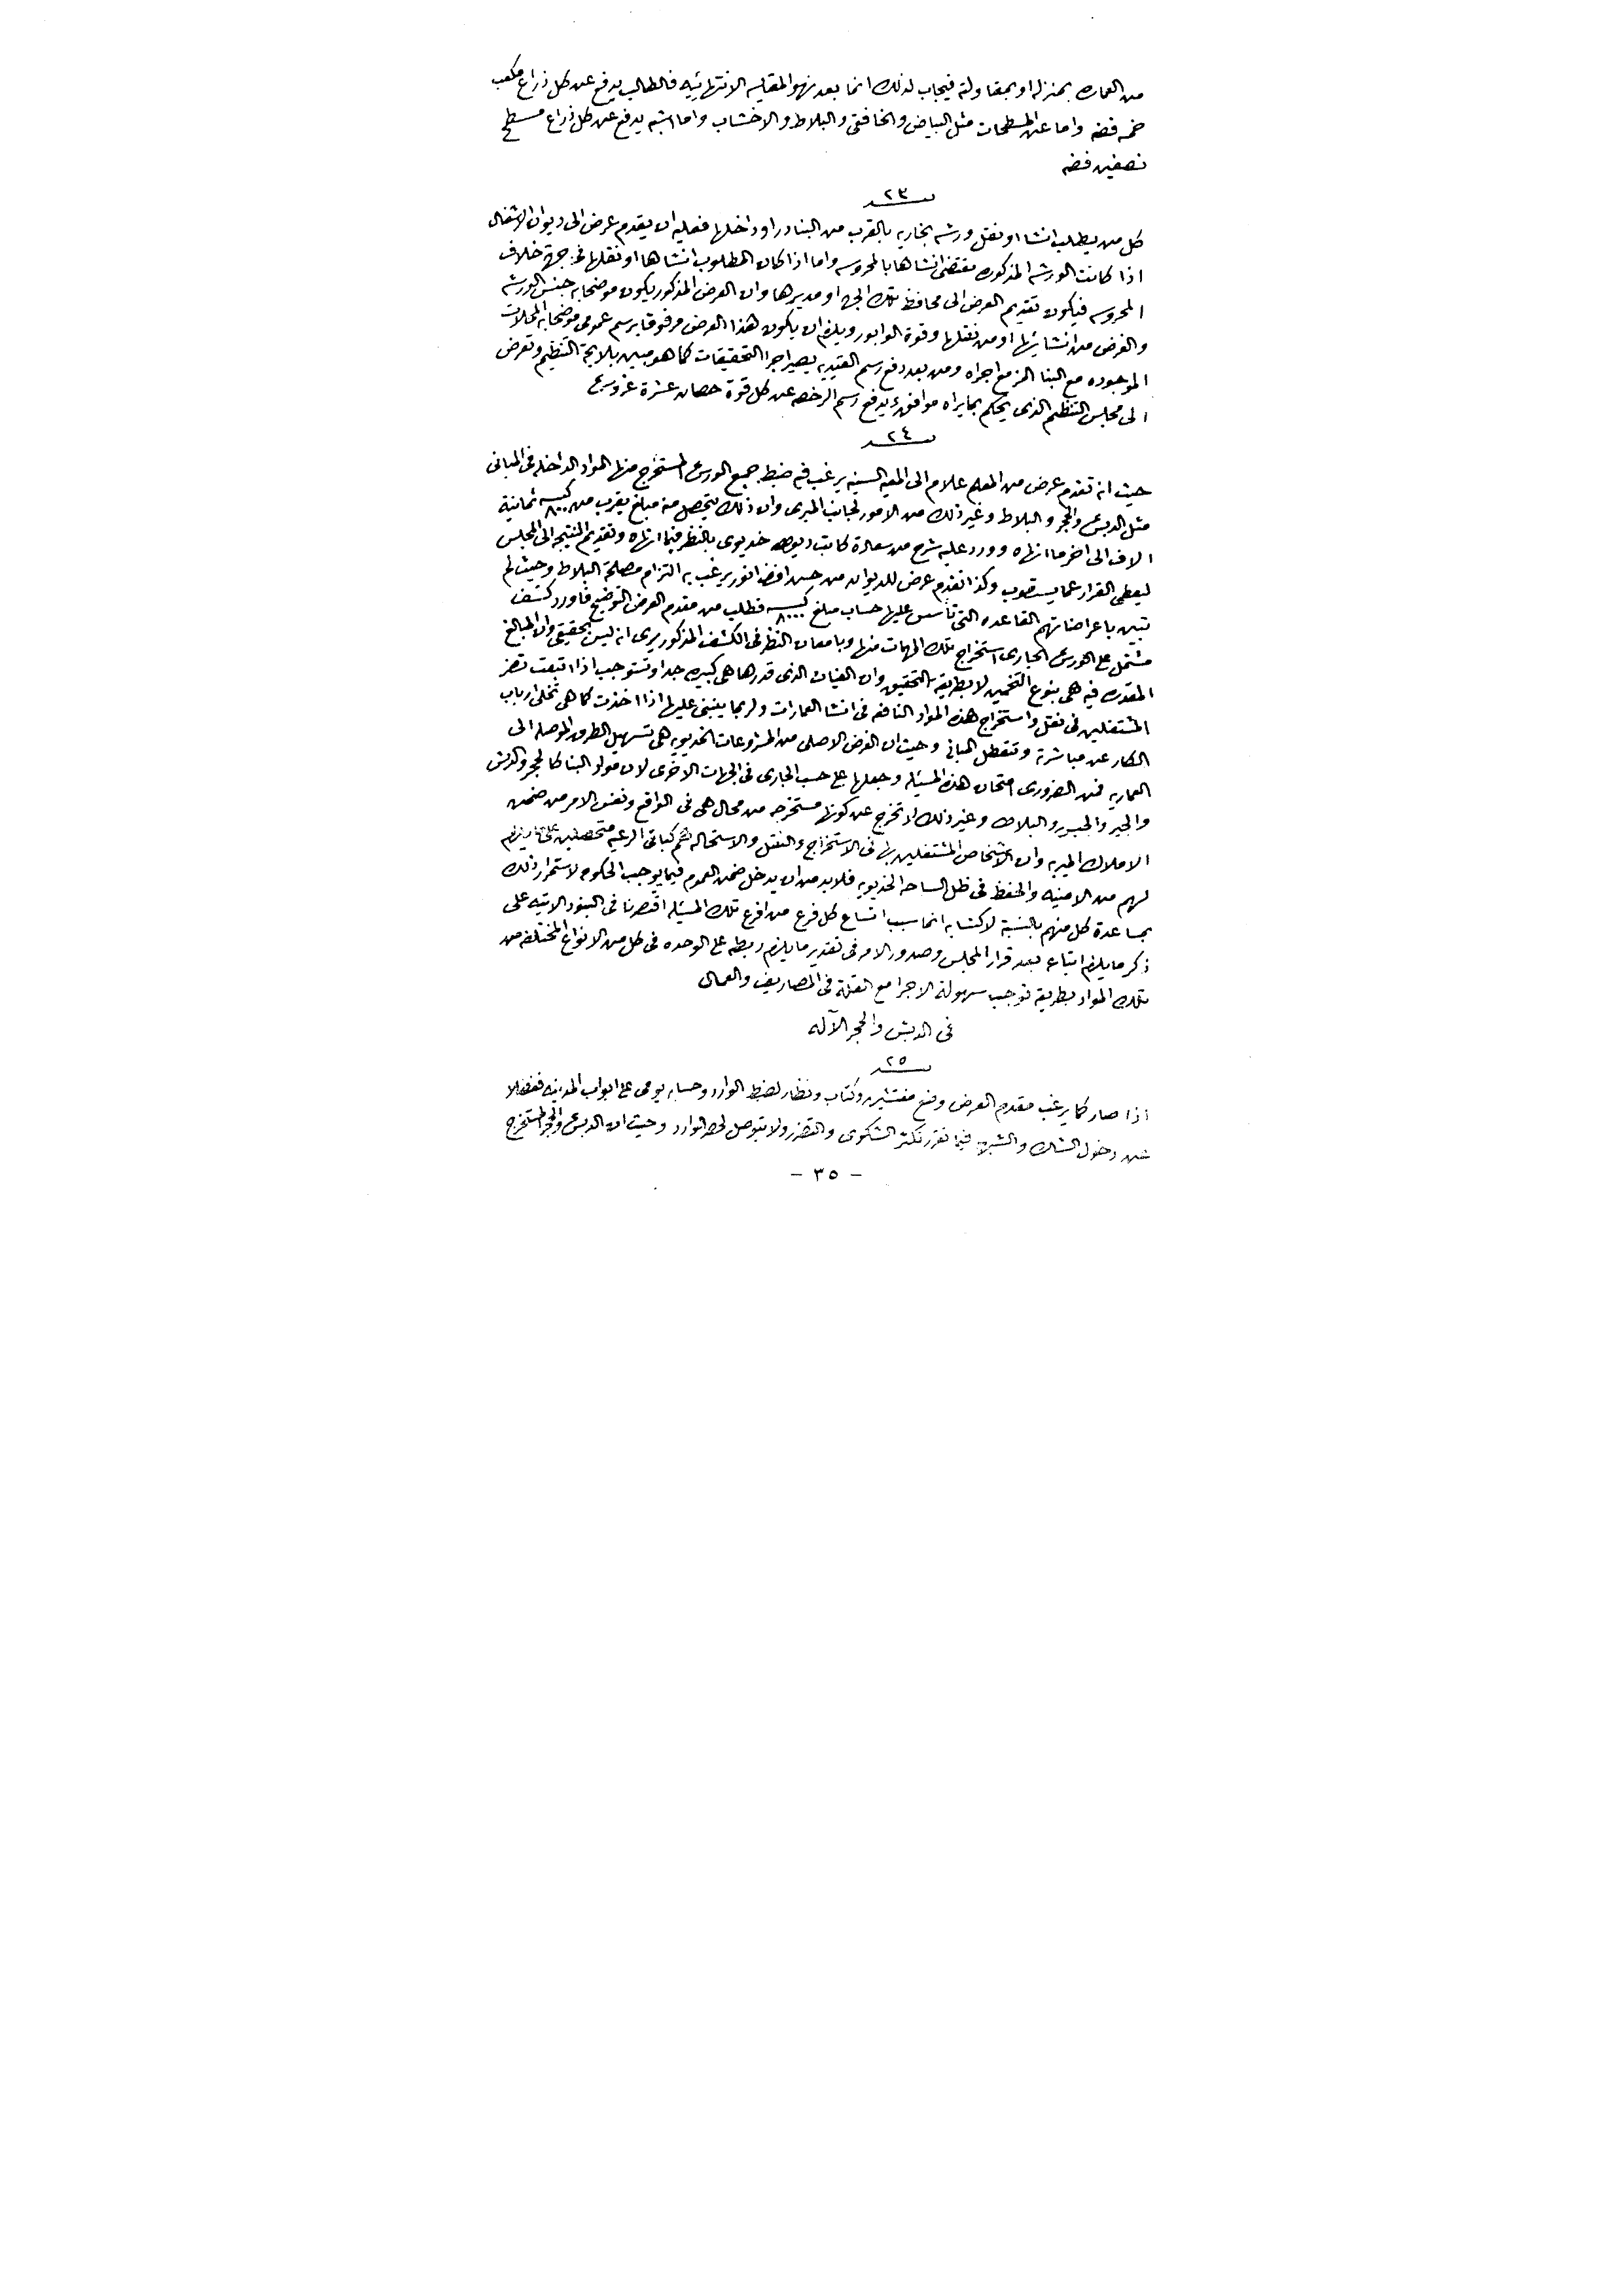 من العماره بمنزله او بمقاولة فيجاب لذلك انما بعد نهو المقايسه الانتهائيه فالطالب يدفع عن كل ذراع مكعب
خمسه فضه واما عن المسطحات مثل البياض والخافقى والبلاط والاخشاب وما اشبه يدفع عن كل ذراع مسطح
نصفين فضه
٢٣
كل من يطلب انشا او نقل ورشه بخاريه بالقرب من البنادر او داخلها فعليه ان يقدم عرض الى ديوان الاشغال
اذا كانت الورشه المذكوره مقتضى انشاها بالمحروسه واما اذا كان المطلوب انشاها او نقلها فى جهة خلاف
المحروسه فيكون تقديم العرض الى محافظ تلك الجهه او مديرها وان العرض المذكور يكون موضحا به جنس الورشه
والغرض من انشائها او من نقلها وقوة الوابور ويلزم ان يكون هذا العرض مرفوقا برسم عمومى موضحا به المحلات
الموجوده مع البنا المزمع اجراه ومن بعد دفع رسم القيديه يصير اجرا التحقيقات كما هو مبين بلايحة التنظيم وتعرض
الى مجلس التنظيم الذى يحكم بما يراه موافق ويدفع رسم الرخصه عن كل قوة حصان عشرة غروش
٢٤
حيث انه تقدم عرض من المعلم علام الى المعيه السنيه يرغب فيه ضبط جميع الورش المستخرج منها المواد الداخله فى المبانى
مثل الدبش والحجر والبلاط وغير ذلك من الامور لجانب الميرى وان ذلك يتحصل منه مبلغ يقرب من كيسه ٨٠٠٠ ثمانية
الاف الى اخر ما انهاه وورد عليه شرح من سعادة كاتب ديوان خديوى بالنظر فيما انهاه وتقديم النتيجه الى المجلس
ليعطى القرار عما يستصوب وكذا تقدم عرض للديوان من حسن افندى انور يرغب به التزام مصلحة البلاط وحيث لم
تبين باعراضاتهم القاعده التى تأسس عليها حساب مبلغ كيسه ٨٠٠٠ فطلب من مقدم العرض التوضيح فاورد كشف
مشتمل على الورش الجارى استخراج تلك المهمات منها وبامعان النظر فى الكشف المذكور يرى انه ليس بحقيقى وان المبالغ
المقدره فيه هى بنوع التخمين لا بطريقة التحقيق وان الفيات الذى قدرها هى كبيره جدا وتستوجب اذا اتبعت تضر
المشتغلين فى نقل واستخراج هذه المواد النافعه فى انشا العمارات ولربما ينبنى عليها اذا اخذت كما هى تخلى ارباب
الكار عن مباشرته وتتعطل المبانى وحيث ان الغرض الاصلى من المشروعات الخديويه هى تسهيل الطرق الموصله الى
العماريه فمن الضرورى امتحان هذه المسئله وجعلها على حسب الجارى فى الجهات الاخرى لان مواد البنا كالحجر والدبش
والجير والجبس والبلاط وغير ذلك لا تخرج عن كونها مستخرجه من محال هى فى الواقع ونفس الامر من ضمن
الاملاك الميريه وان الاشخاص المشتغلين بها فى الاستخراج والنقل والاستحاله هم كباقى الرعيه متحصلين على ما يلزم
لهم من الامنيه والحفظ فى ظل الساحه الخديويه فلا بد من ان يدخل ضمن العموم فيما يوجب الحكومه لاستمرار ذلك
بمساعدة كل منهم بالنسبة لاكتسابه انما بسبب اتساع كل فرع من افرع تلك المسئله اقتصرنا فى البنود الاتيه على
ذكر ما يلزم اتباعه بعد قرار المجلس وصدور الامر فى تقدير ما يلزم ربطه على الوحده فى كل من الانواع المختلفه من
تلك المواد بطريقه توجب سهولة الاجرا مع القلة فى المصاريف والعمال
فى الدبش والحجر الآله
٢٥
اذا صار كما يرغب مقدم العرض وضع مفتشين وكتاب ونظار لضبط الوارد وحسابه يومى على ابواب المدينه ففضلا
عن دخول الشك والشبهه فيما تقرر تكثر الشكوى والتضرر ولا يتوصل لحصر الوارد وحيث ان الدبش والحجر المستخرج
- ٣٥ -